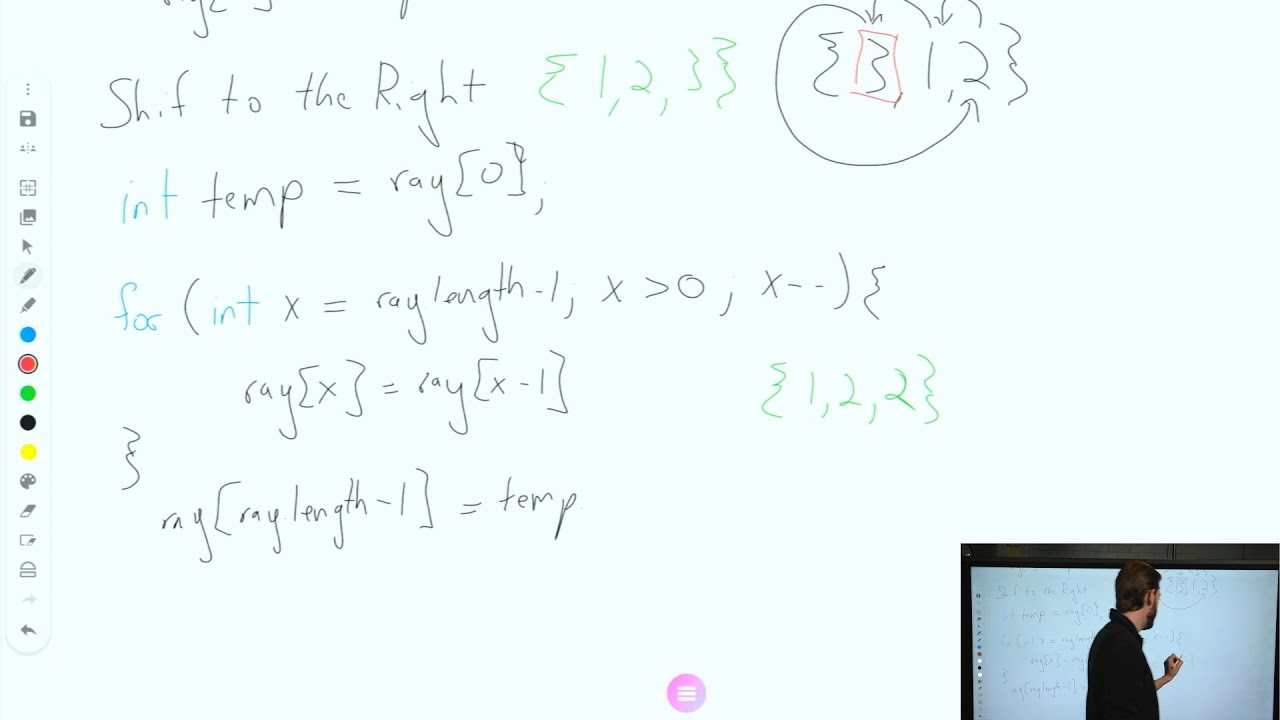 Shif to the Right {1,2,3} {3 1,2}
int temp = ray[0];
for (int x = ray.length-1; x>0; x--){
ray[x] = ray[x-1]
{1,2,2}
}
ray[ray.length-1] = temp.